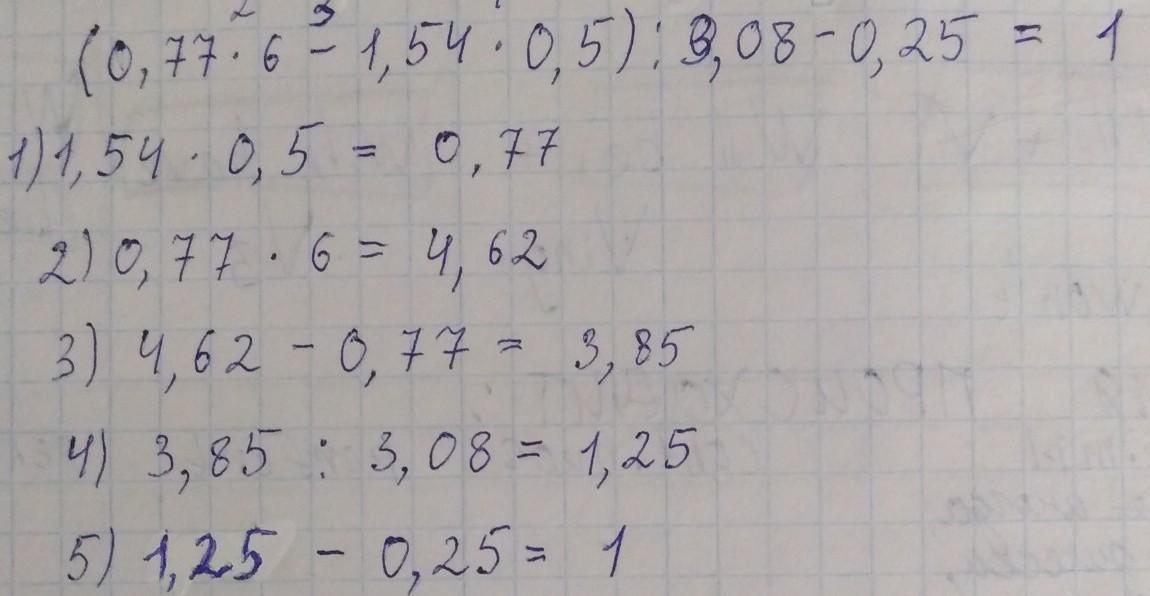 2 3
(0,77 · 6 - 1,54 · 0,5) : 3,08 - 0,25 = 1
1) 1,54 · 0,5 = 0,77
2) 0,77 · 6 = 4,62
3) 4,62 - 0,77 = 3,85
4) 3,85 : 3,08 = 1,25
5) 1,25 - 0,25 = 1